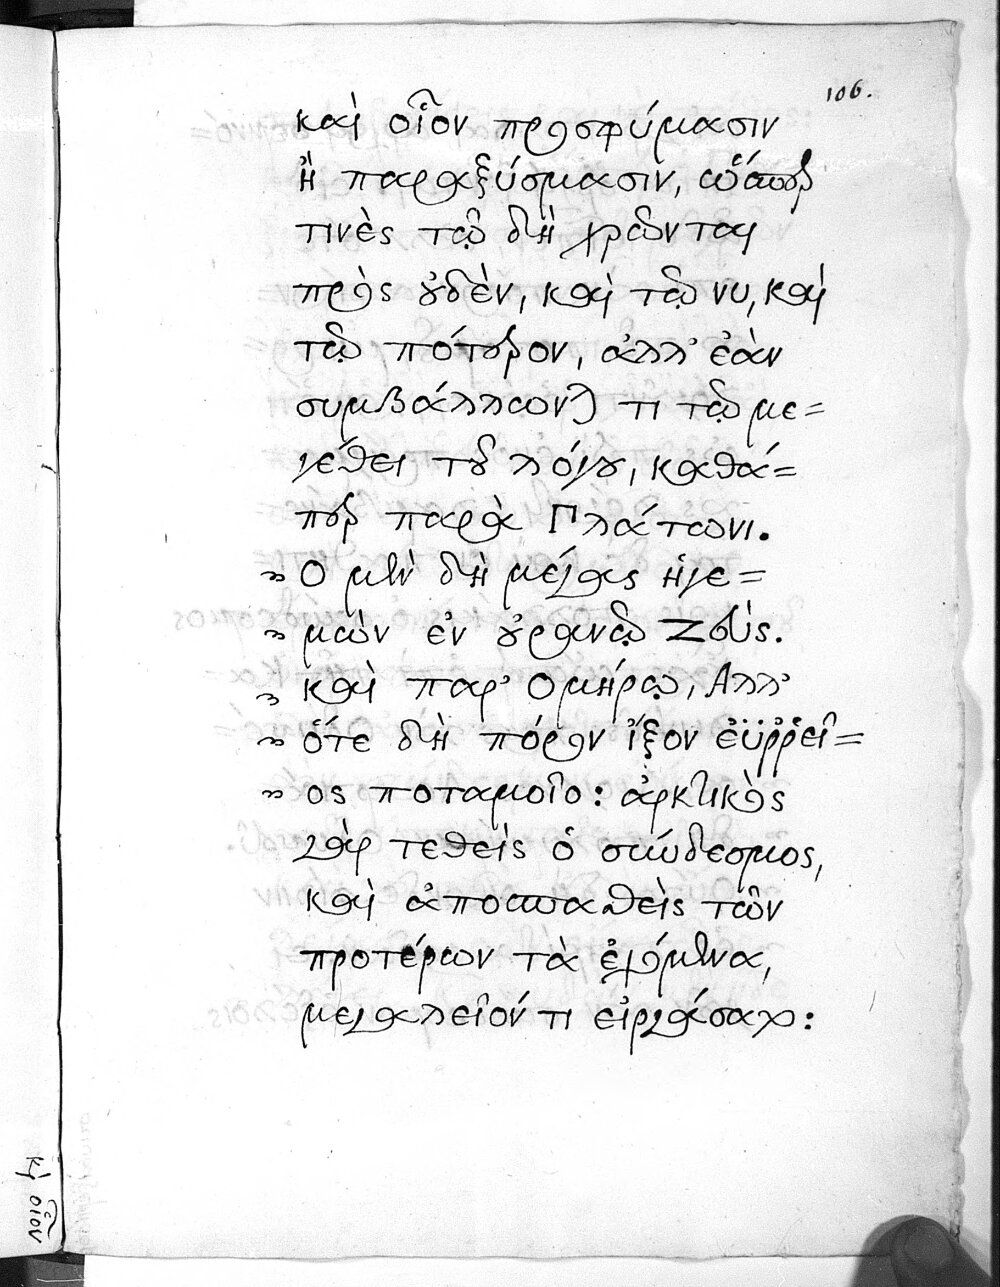 106.
καὶ οἷον προσφύμασιν
ἢ παραξύσμασιν, ὥσπερ
τινὲς τῷ δὴ χρῶνται
πρὸς οὐδὲν, καὶ τῷ νυ, καὶ
τῷ πότερον, ἀλλ' ἐὰν
συμβάλλωνται τι τῷ με=
γέθει τοῦ λόγου, καθά=
περ παρὰ Πλάτωνι.
" Ο μὲν δὴ μέγας ἡγε=
" μὼν ἐν οὐρανῷ Ζεύς.
" καὶ παρ' Ομήρῳ, Αλλ'
" ὅτε δὴ πόρον ἷξον ἐϋῤῥεῖ=
" ος ποταμοῖο: ἀρκτικὸς
γὰρ τεθεὶς ὁ σύνδεσμος,
καὶ ἀποσπασθεὶς τῶν
προτέρων τὰ ἐχόμενα,
μεγαλεῖόν τι εἰργάσατο:
κὶ οἷον